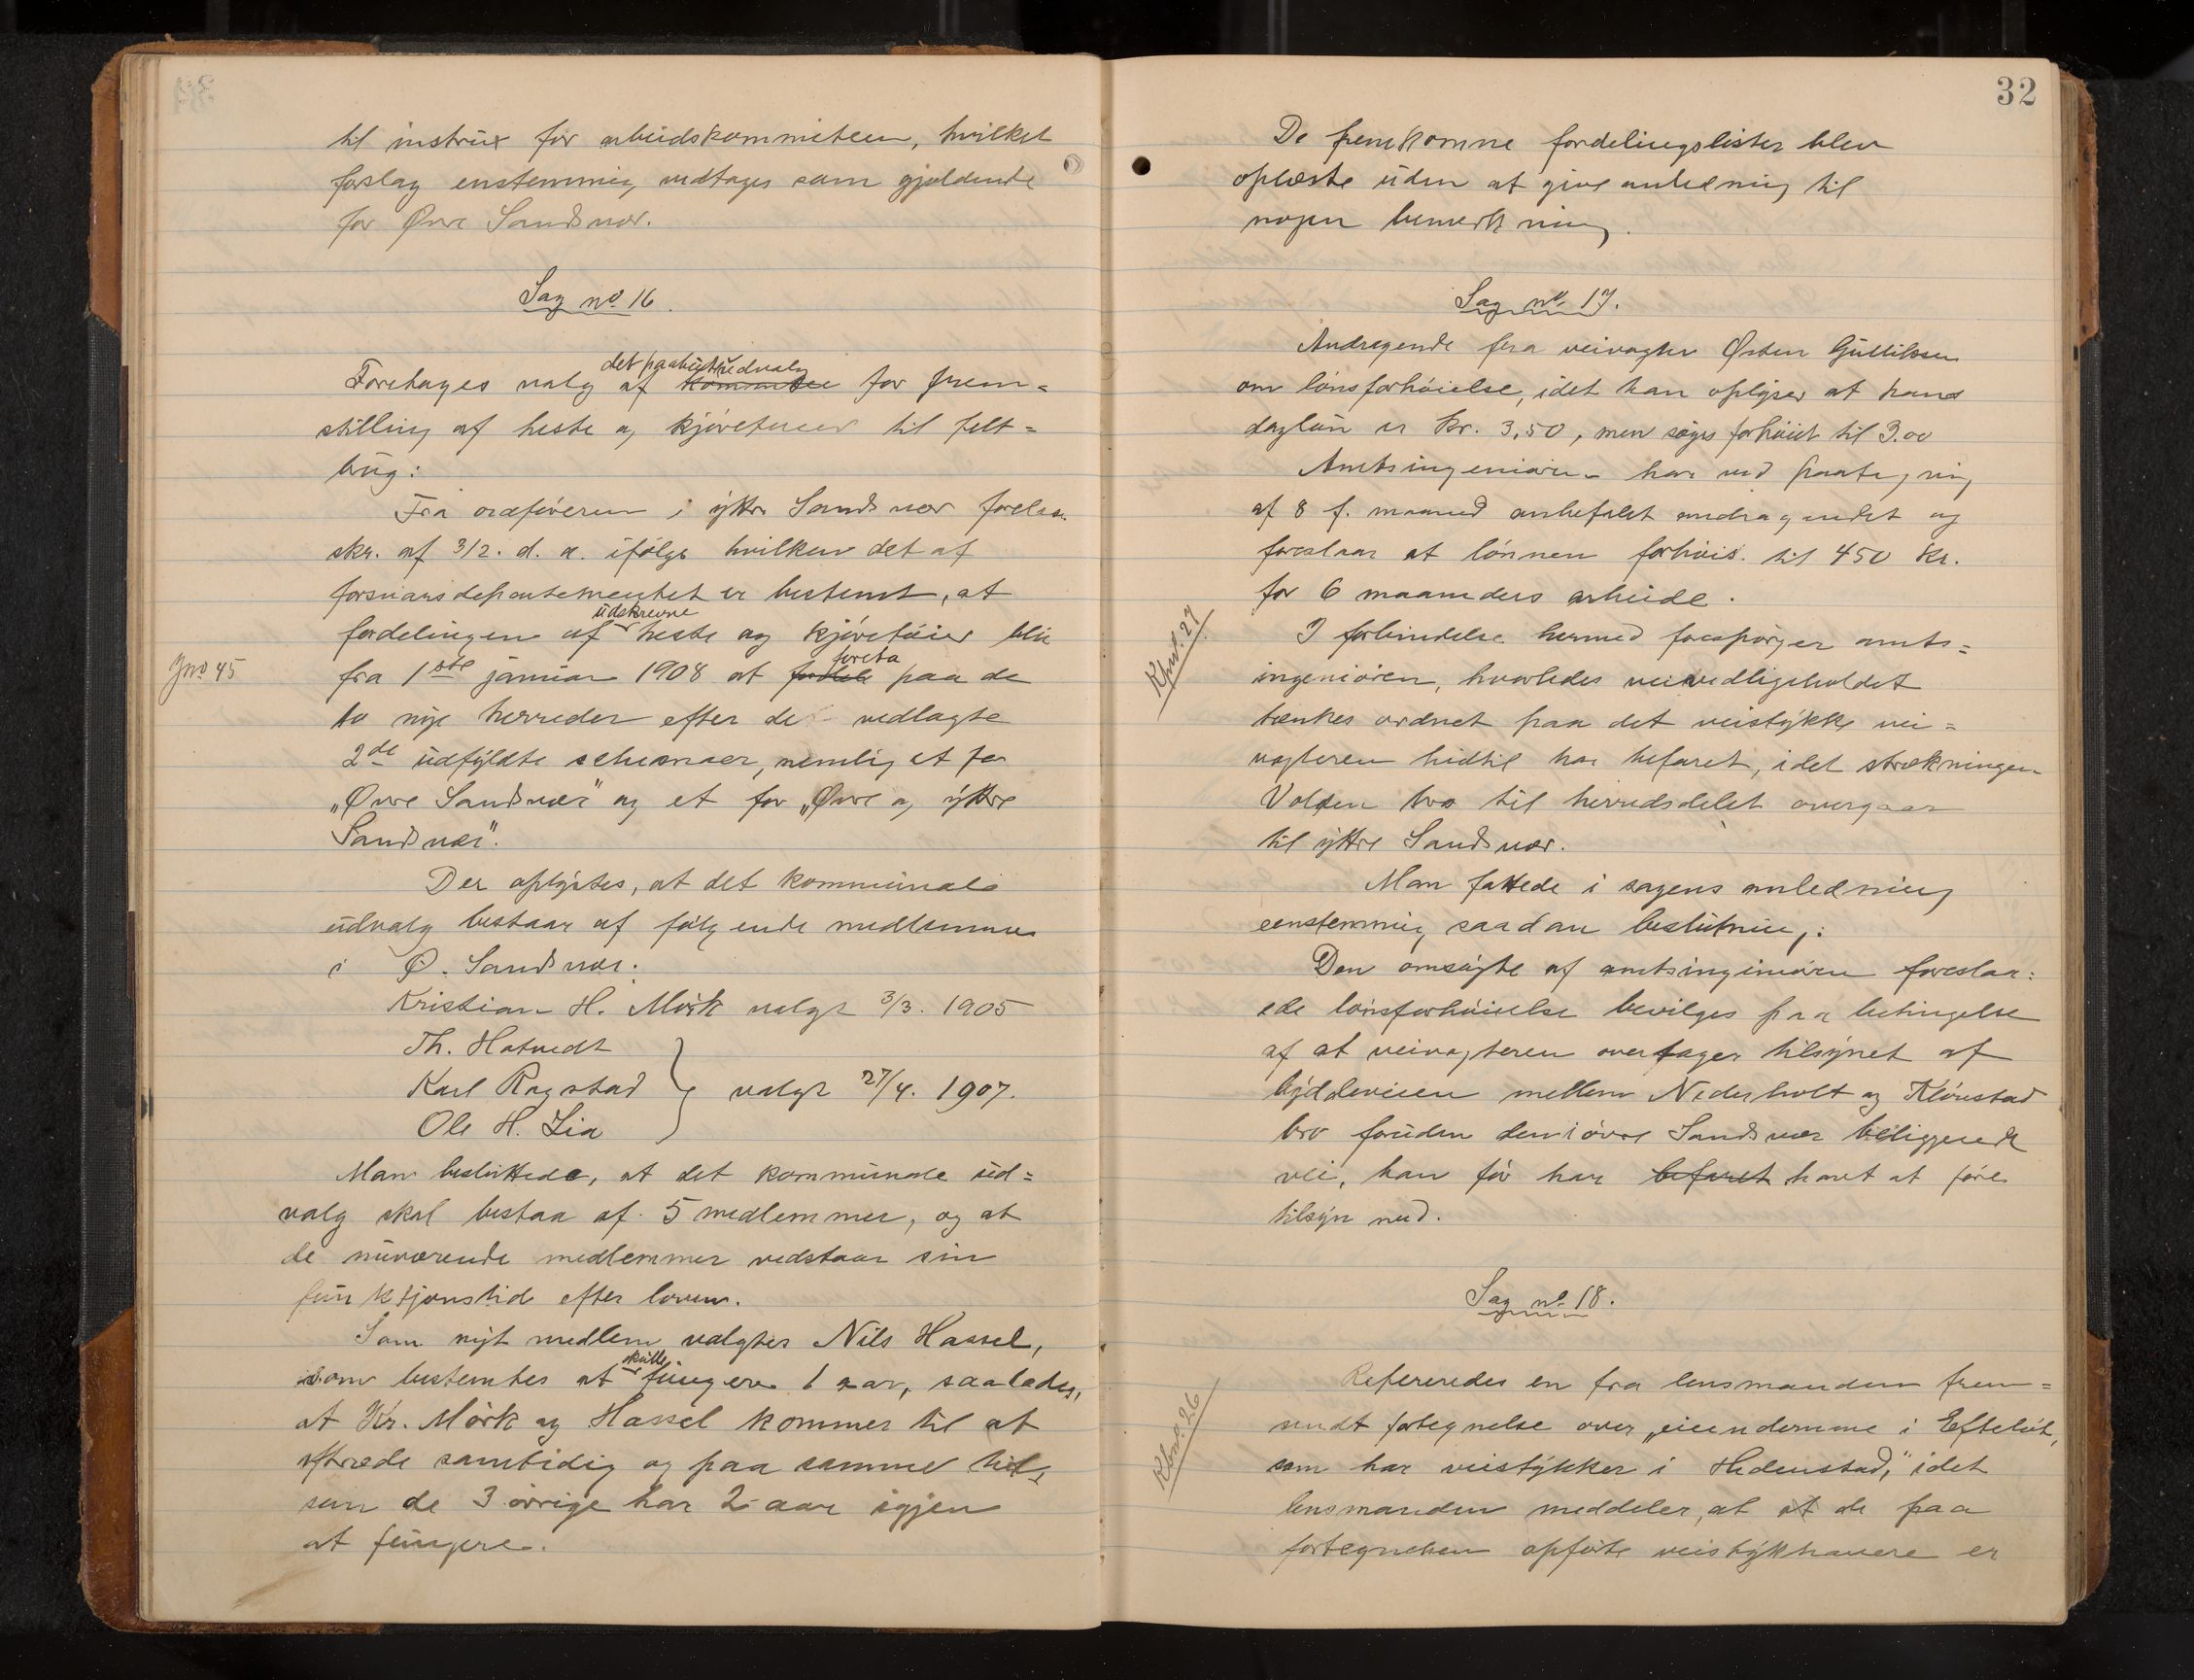 til instrux for arbeidskommiteen, hvilket
forslag enstemmig vedtages som gjældende
for Øvre Sandsvær.
Sag no 16.
det paabudte udvalg
Foretages valg af kommitee for frem=
stilling af heste og kjøretøier til felt=
brug:
Fra ordføreren i ýttre Sandsvær forelaa
skr. af 3/2. d. a. ifølge hvilken det af
forsvarsdepartementet er bestemt, at
udskrevne
fordelingen af heste og kjøretøier blir
foreta
Jno 45
fra 1ste januar 1908 at paa de
to nye herreder efter de vedlagte
2de udfýldte schemaer, nemlig et for
„Øvre Sandsvær" og et for „Øvre og ýttre
Sandsvær".
Der oplýstes, at det kommunale
udvalg bestaar af følgende medlemmer
i Ø. Sandsvær.
Kristian H. Mørk valgt 3/3. 1905
Th. Hotvedt
Karl Ragstad } valgt 27/4. 1907.
Ole H. Lia
Man besluttede, at det kommunale ud=
valg skal bestaa af 5 medlemmer, og at
de nuværende medlemmer vedstaar sin
funktjonstid efter loven.
Som nýt medlem valgtes Nils Hassel,
skulle
som bestemtes at fungere 1 aar, saaledes,
at Kr. Mørk og Hassel kommer til at
aftræde samtidig og paa samme tid,
som de 3 øvrige har 2 aar igjen
at fungere.
32
De fremkomne fordelingslister blev
oplæste uden at give anledning til
nogen bemerkning.
Sag no 17.
Andragende fra veivogter Østen Gulliksen
om lønsforhøielse, idet han oplýser at hans
dagløn er Kr. 3,50, men søges forhøiet til 3.00
Amtsingeniøren har ved paategning
af 8 f. maaned anbefalet andragendet og
foreslaar at lønnen forhøies til 450 Kr.
for 6 maaneders arbeide.
Kpno. 27
I forbindelse hermed forespørger amts=
ingeniøren, hvorledes veivedligeholdet
tænkes ordnet paa det veistýkke vei=
vogteren hidtil har befaret, idet strækningen
Volden bro til herredsdelet overgaar
til ýttre Sandsvær.
Man fattede i sagens anledning
eenstemmig saadan beslutning:
Den omsøgte af amtsingeniøren foreslaa=
ede lønsforhøielse bevilges paa betingelse
af at veivogteren overtager tilsýnet af
býgdeveien mellem Nederholt og Klønstad
bro foruden den i øvre Sandsvær beliggende
vei, han før har befaret havt at føre
tilsýn med.
Sag no 18.
Kpno. 26
Refereredes en fra lensmanden frem=
sendt fortegnelse over „eiendomme i Efteløt,
som har veistýkker i Hedenstad," idet
lensmanden meddeler, at at de paa
fortegnelsen opførte veistýkhavere er